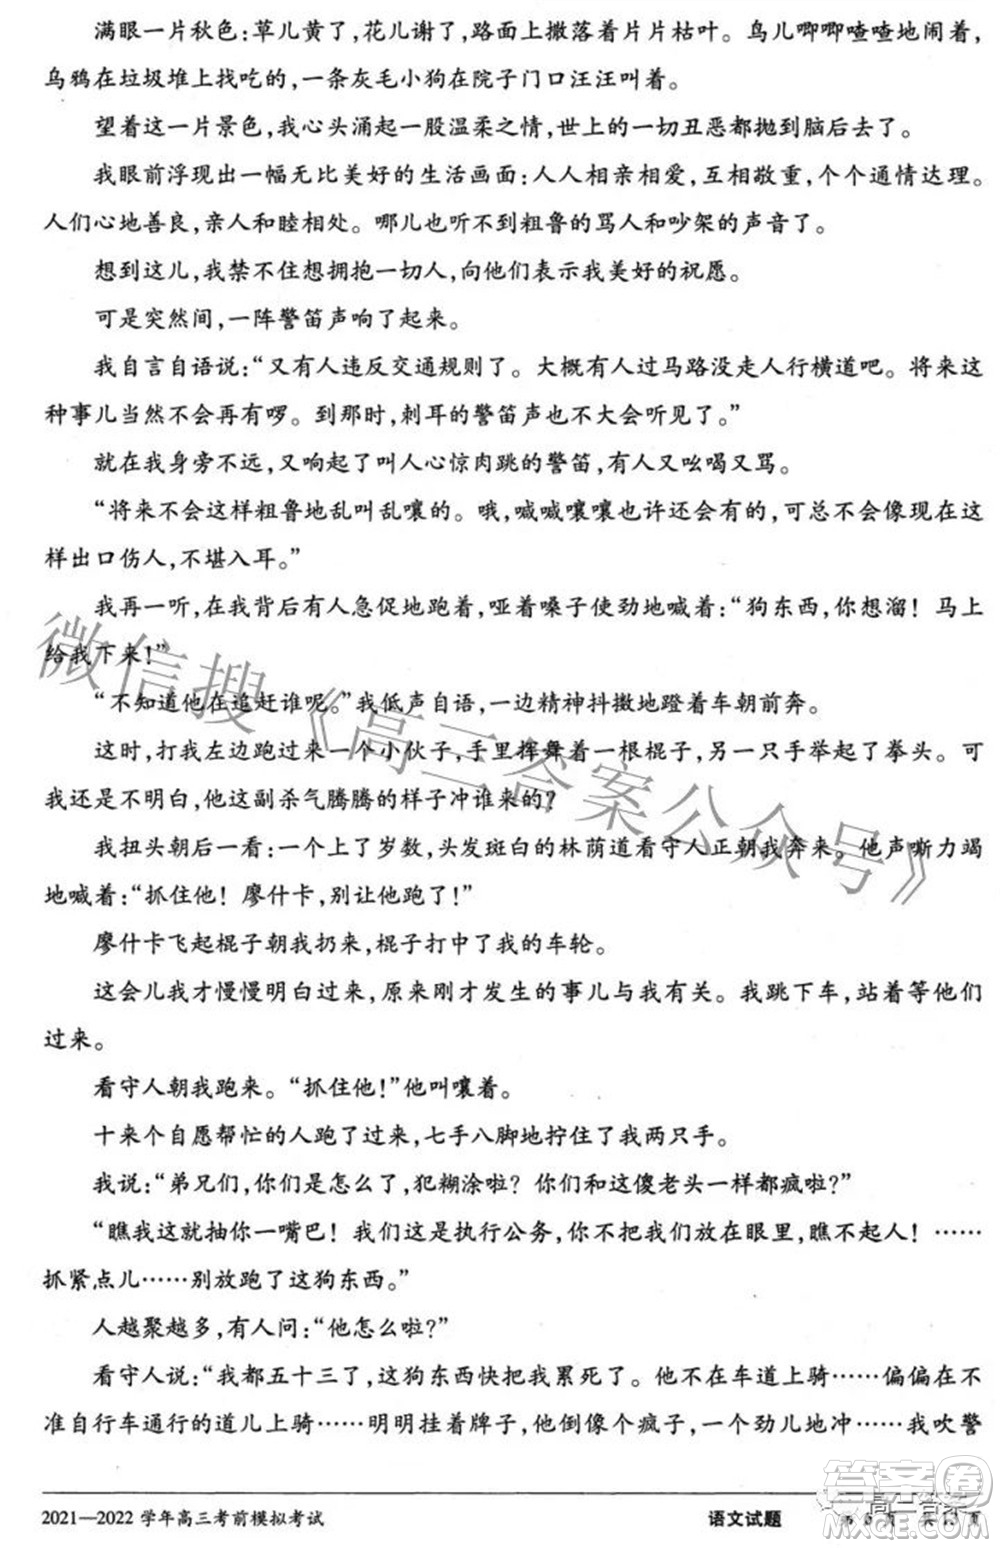 满眼一片秋色:草儿黄了,花儿谢了,路面上撒落着片片枯叶。鸟儿唧唧喳喳地闹着,
乌鸦在垃圾堆上找吃的,一条灰毛小狗在院子门口汪汪叫着。
望着这一片景色,我心头涌起一股温柔之情,世上的一切丑恶都抛到脑后去了。
我眼前浮现出一幅无比美好的生活画面:人人相亲相爱,互相敬重,个个通情达理。
人们心地善良,亲人和睦相处。哪儿也听不到粗鲁的骂人和吵架的声音了。
想到这儿,我禁不住想拥抱一切人,向他们表示我美好的祝愿。
可是突然间,一阵警笛声响了起来。
我自言自语说:“又有人违反交通规则了。大概有人过马路没走人行横道吧。将来这
种事儿当然不会再有啰。到那时,刺耳的警笛声也不大会听见了。”
就在我身旁不远,又响起了叫人心惊肉跳的警笛,有人又吆喝又骂。
“将来不会这样粗鲁地乱叫乱嚷的。哦,喊喊嚷嚷也许还会有的,可总不会像现在这
样出口伤人,不堪入耳。”
我再一听,在我背后有人急促地跑着,哑着嗓子使劲地喊着:“狗东西,你想溜!马上
给我下来!”
“不知道他在追赶谁呢。”我低声自语,一边精神抖擞地蹬着车朝前奔。
这时,打我左边跑过来一个小伙子,手里挥舞着一根棍子,另一只手举起了拳头。可
我还是不明白,他这副杀气腾腾的样子冲谁来的?
我扭头朝后一看:一个上了岁数,头发斑白的林荫道看守人正朝我奔来。他声嘶力竭
地喊着:“抓住他!廖什卡,别让他跑了!”
廖什卡飞起棍子朝我扔来,棍子打中了我的车轮。
这会儿我才慢慢明白过来,原来刚才发生的事儿与我有关。我跳下车,站着等他们
过来。
看守人朝我跑来。“抓住他!”他叫嚷着。
十来个自愿帮忙的人跑了过来,七手八脚地拧住了我两只手。
我说:“弟兄们,你们是怎么啦,犯糊涂啦?你们和这傻老头一样都疯啦?”
“瞧我这就抽你一嘴巴!我们这是执行公务,你不把我们放在眼里,瞧不起人!……
抓紧点儿……别放跑了这狗东西。”
人越聚越多,有人问:“他怎么啦?”
看守人说:“我都五十三了,这狗东西快把我累死了。他不在车道上骑……偏偏在不
准自行车通行的道儿上骑……明明挂着牌子,他倒像个疯子,一个劲儿地冲……我吹警
2021—2022学年高三考前模拟考试 语文试题
微信搜《高三答案公众号》
答案圈
高三答案
MXQE.COM